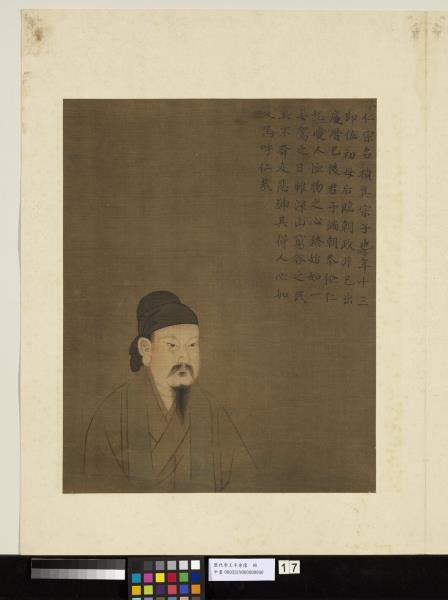 仁宗名禎真宗子也年十三
即位初母后臨朝政非己出
慶曆已後君子滿朝恭儉仁
恕愛人恤物之心終始如一
晏駕之日雖深山窮谷之民
莫不奔走悲號其得人心如
呼仁哉
歷代帝王半身像 冊
中畫
17